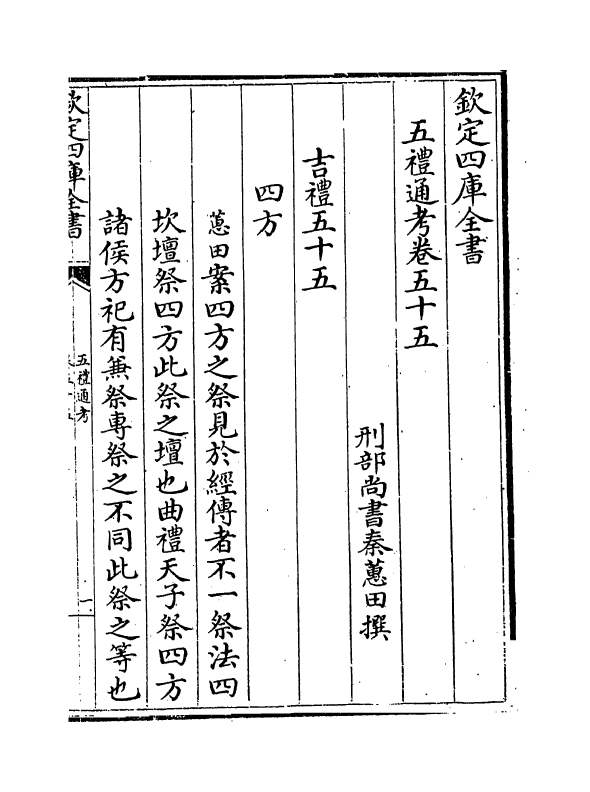 欽定四庫全書
五禮通考卷五十五
刑部尚書秦蕙田撰
吉禮五十五
四方
蕙田案四方之祭見於經傳者不一祭法四
坎壇祭四方此祭之壇也曲禮天子祭四方
諸侯方祀有兼祭專祭之不同此祭之等也
欽定四庫全書
五禮通考
卷五十五
一